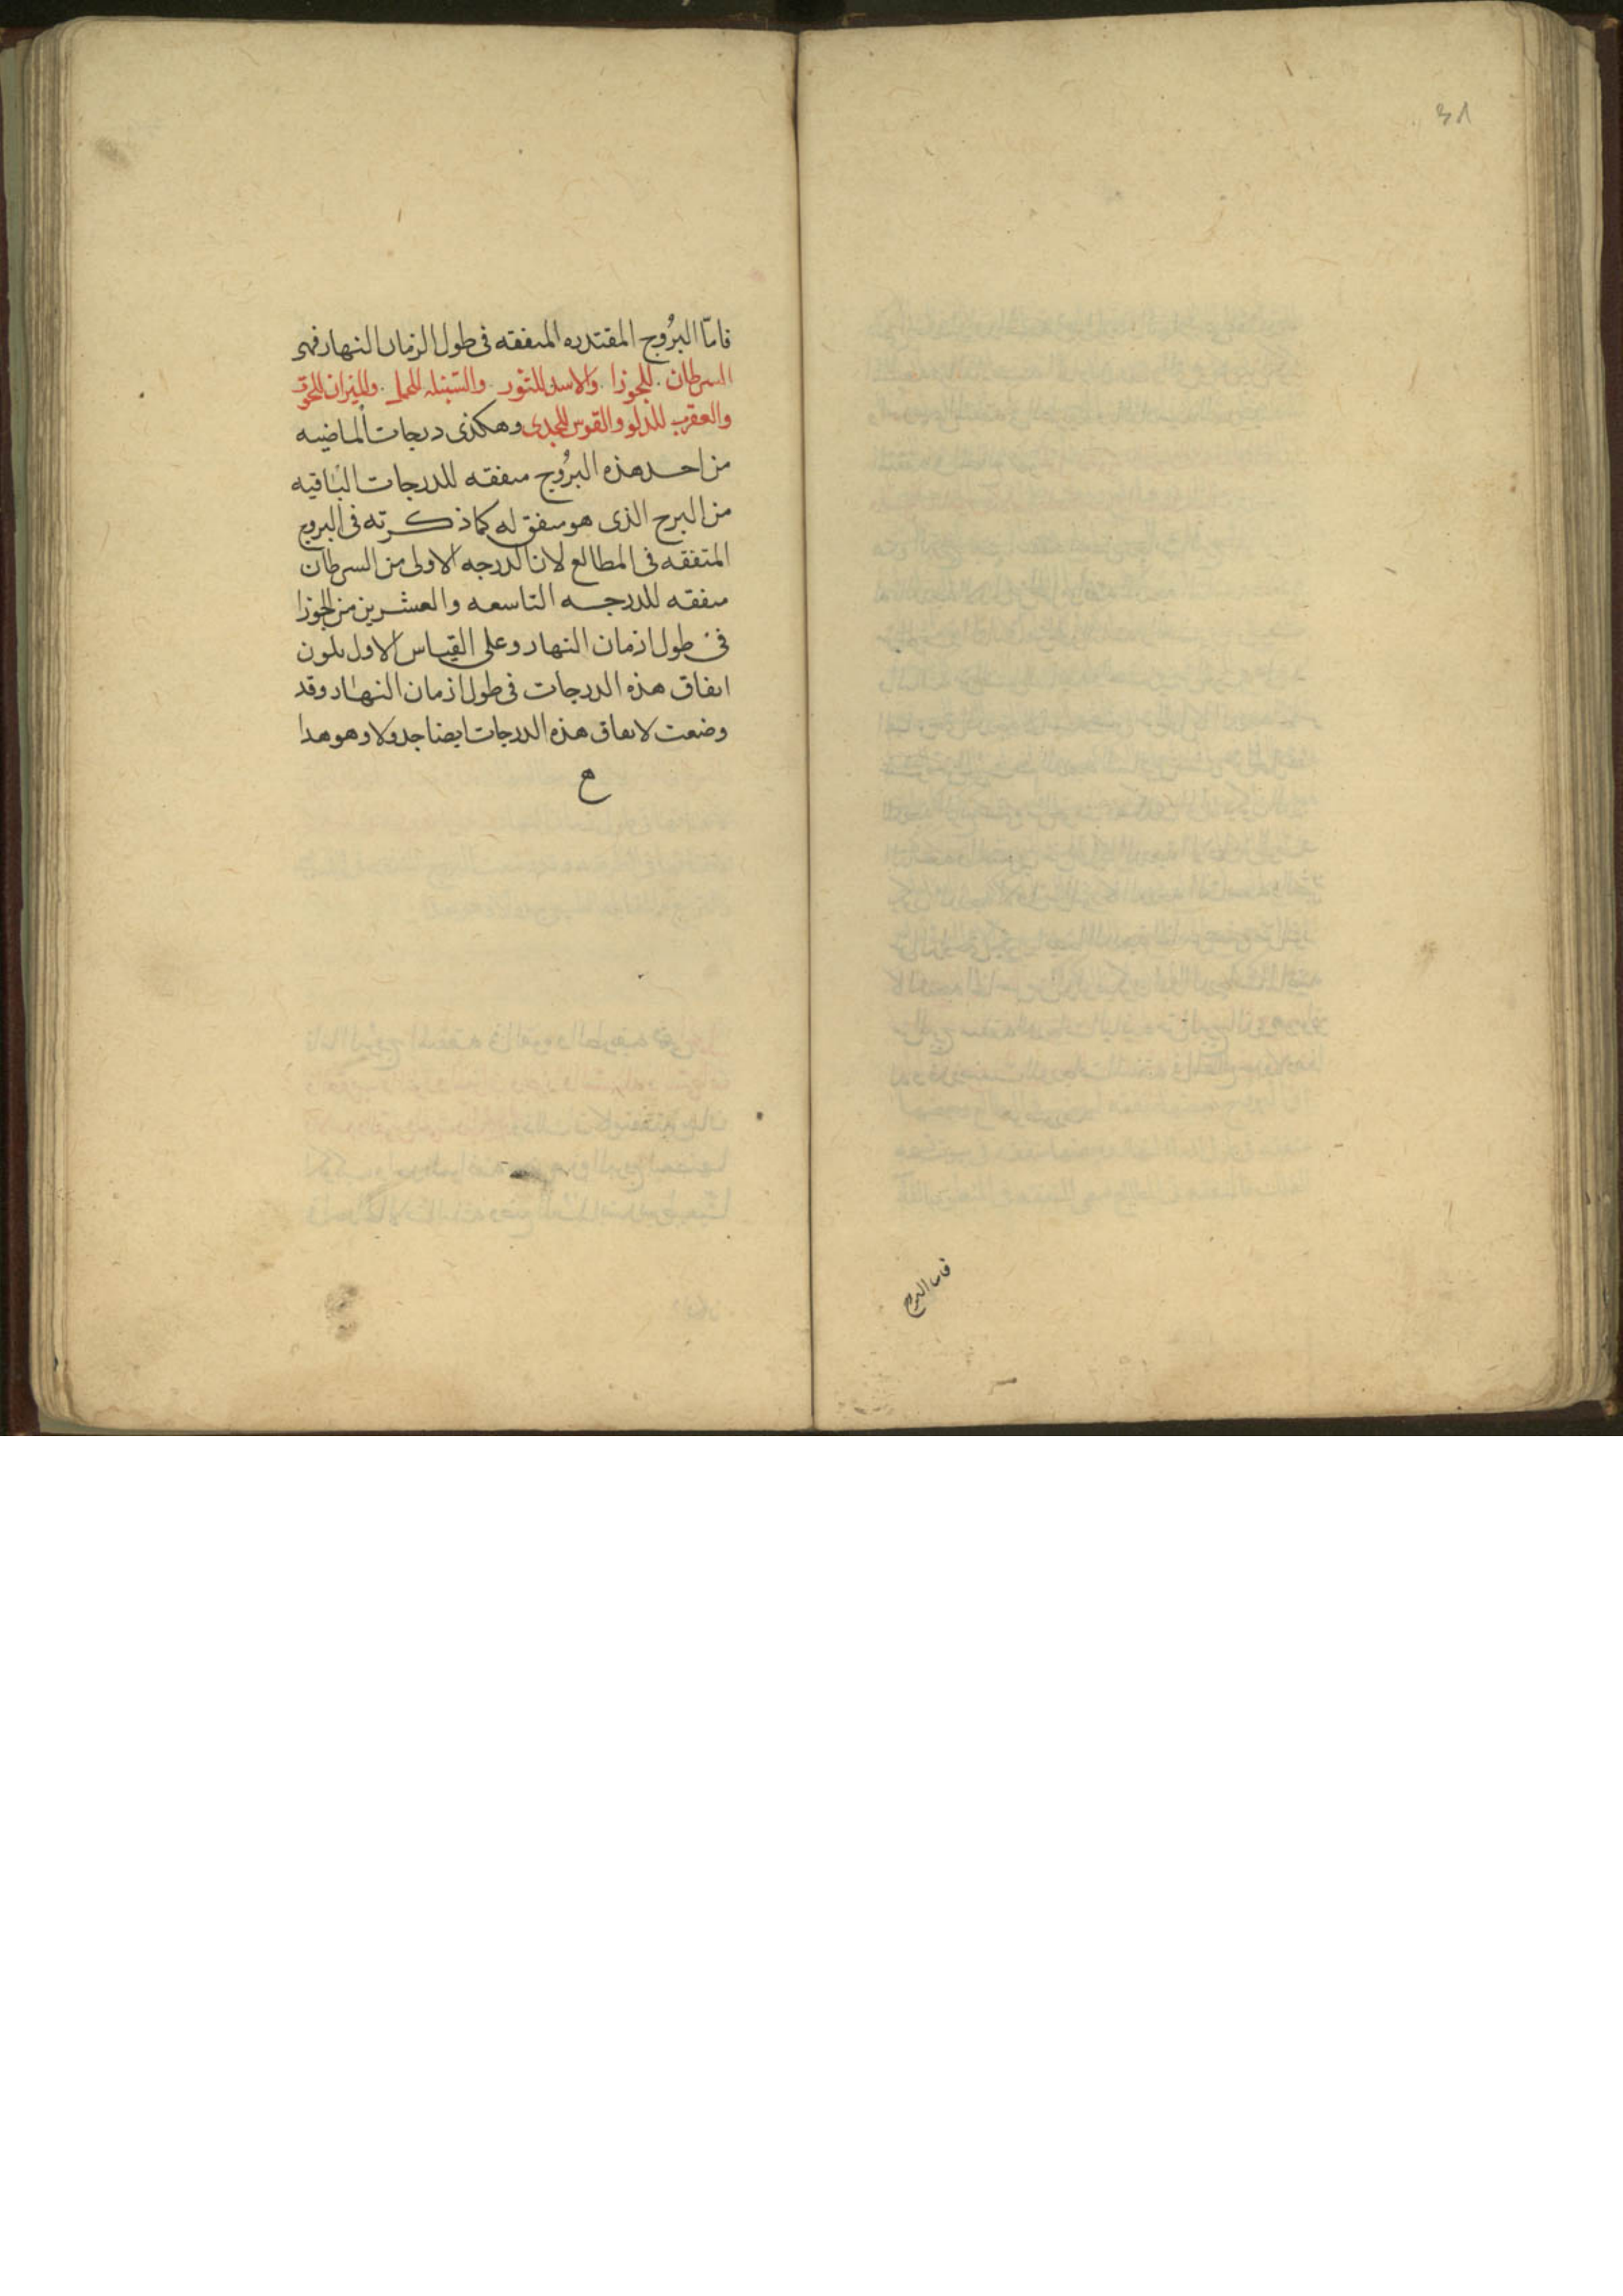 ٣٨
فاما البروج
فامّا البرُوج المقتدره المتفقه فى طول الزمان النهار فهو
السرطان . للجوزا . والاسد للثور . والسنبله للحمل . والميزان للحوت
والعقرب للدلو والقوس للجدى وهكذى درجات الماضيه
من احد هذه البرُوج متفقه للدرجات الباقيه
من البرج الذى هو متفق له كما ذكرته فى البروج
المتفقه فى المطالع لان الدرجه الاولى من السرطان
متفقه للدرجه التاسعه والعشرين من الجوزا
فى طول ازمان النهار وعلى القياس الاول يكون
اتفاق هذه الدرجات فى طول ازمان النهار وقد
وضعت لاتفاق هذه الدرجات ايضا جدولا وهو هدا